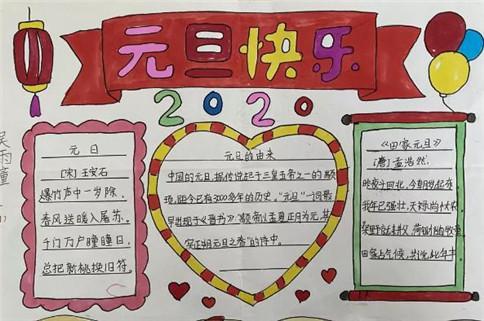 元旦快乐
2020
元日
[宋]王安石
爆竹声中一岁除
春风送暖入屠苏
千门万户曈曈日
总把新桃换旧符
元旦的由来
中国的元旦,据传说起于三皇五帝之一的颛
顼,距今已有3000多年的历史。"元旦"一词最
早出现于《晋书》"颛帝以孟夏正月为元,其
实正朔元旦之春"的诗中。
《田家元旦》
[唐]孟浩然
昨夜斗回北,今朝岁起东
我年已强壮,无禄尚忧农
桑野就耕父,荷锄随牧童
田家占气候,共说此年丰